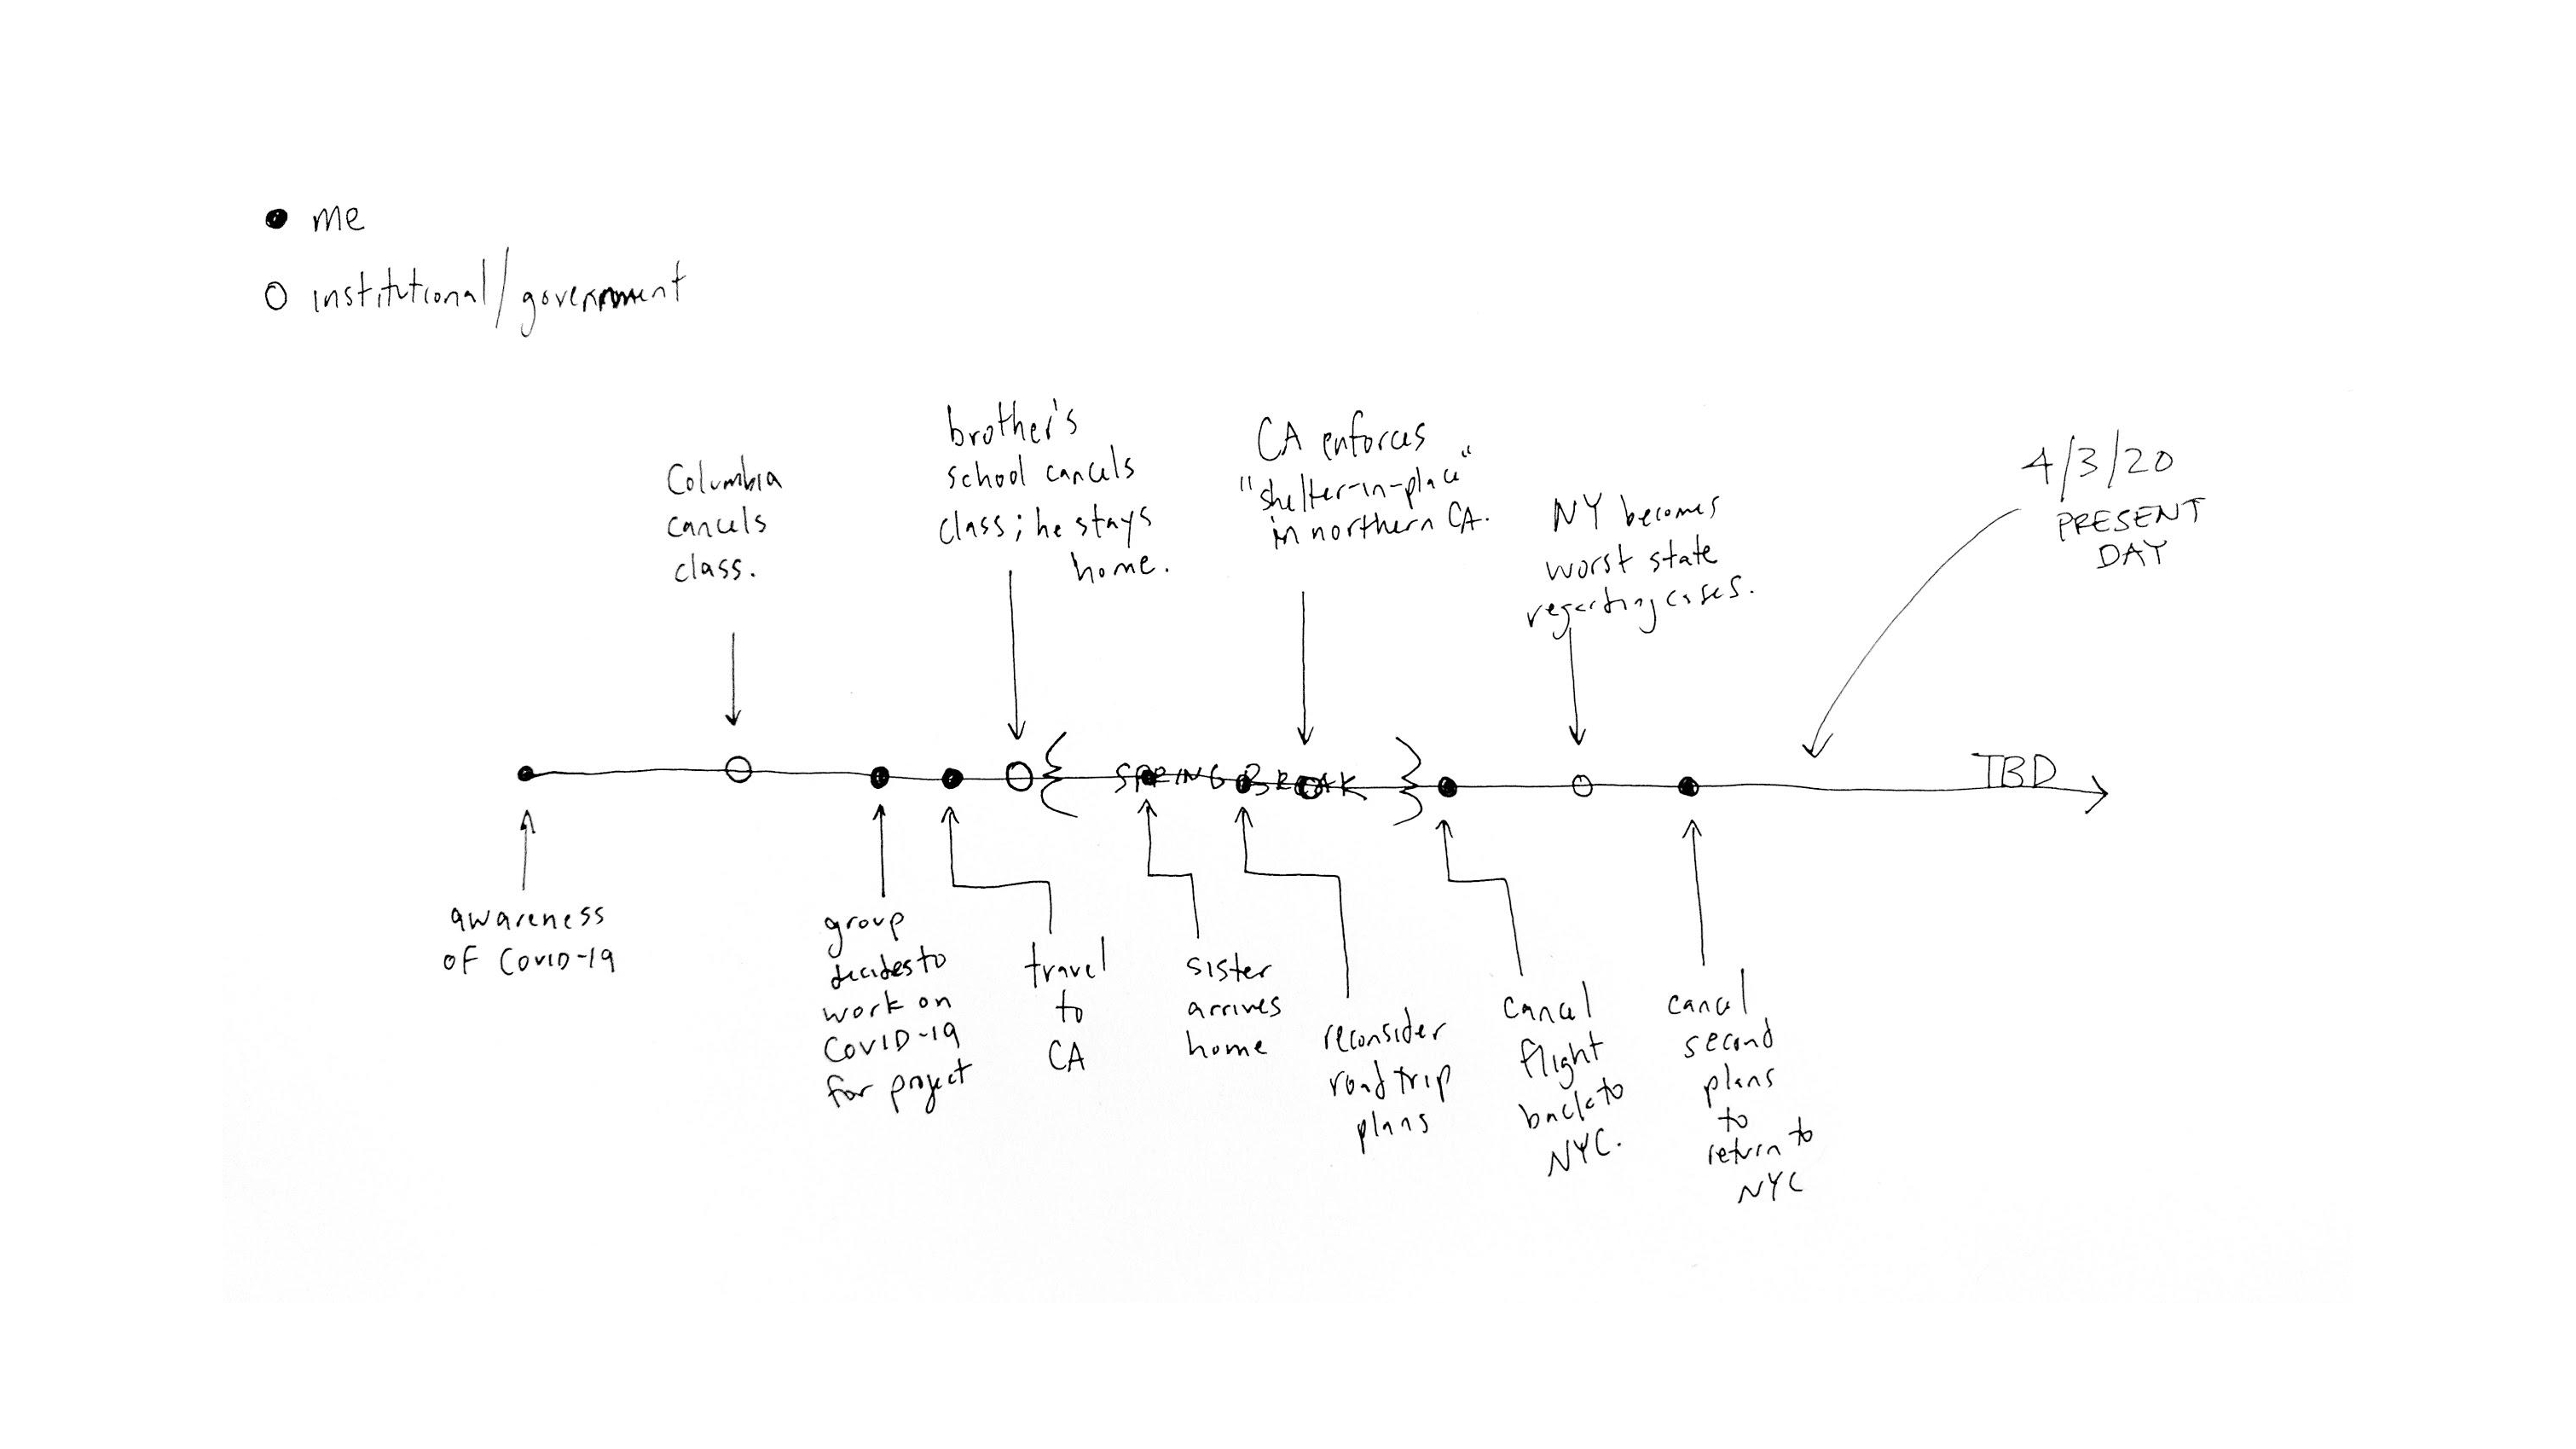 me
institutional/government
Columbia
cancels
class.
brother's
school cancels
class; he stays
home.
CA enforces
"shelter-in-place"
in northern CA.
NY becomes
worst state
regarding cases.
4/3/20
PRESENT
DAY
SPRING BREAK
TBD
awareness
of COVID-19
group
decides to
work on
COVID-19
for project
travel
to
CA
sister
arrives
home
reconsider
road trip
plans
cancel
flight
back to
NYC.
cancel
second
plans
to
return to
NYC